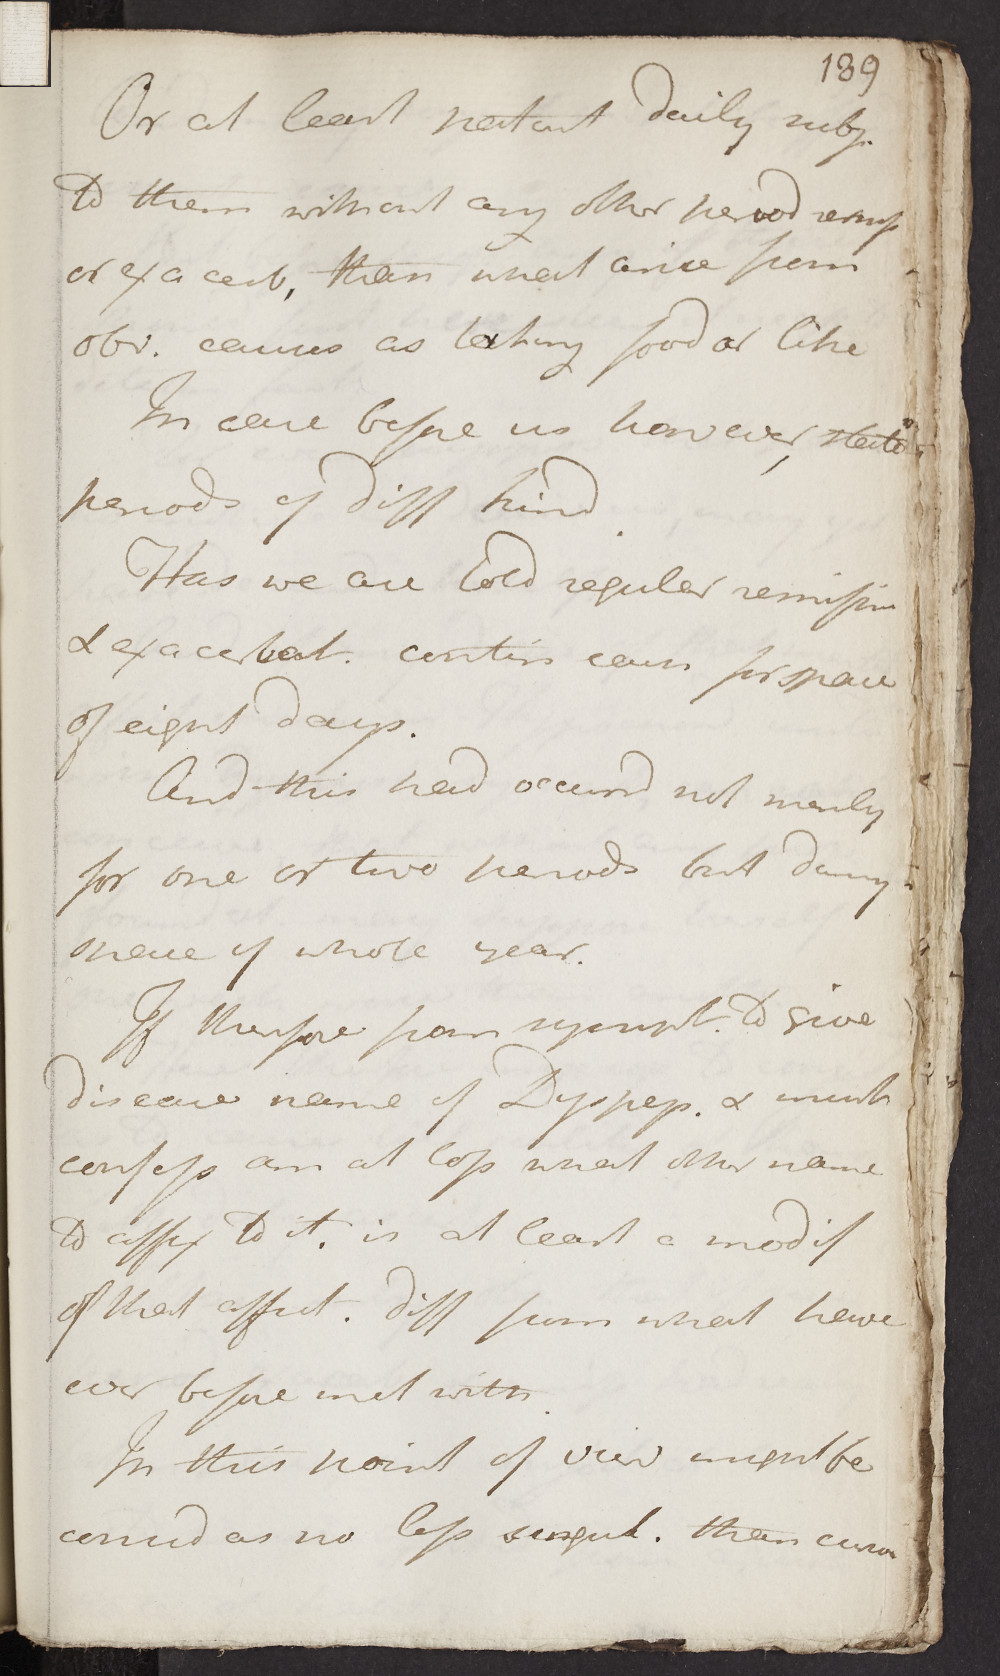 189
Or at least patient daily subj.
to them without any other period remiss
or exacerb, than what arise from
obv. causes as taking food or like
In case before us however, stated
periods of diff kind
Has we are told regular remission
& exacerbat. contin each for space
of eight days.
And this had occurred not merely
for one or two periods but during
space of whole year.
If therefore from sympt. to give
disease name of Dyspep. & must
confess am at loss what other name
to affix to it. is at least a modif
of that affect. diff from what have
ever before met with.
In this point of view might be
consid as no less singul. than curious